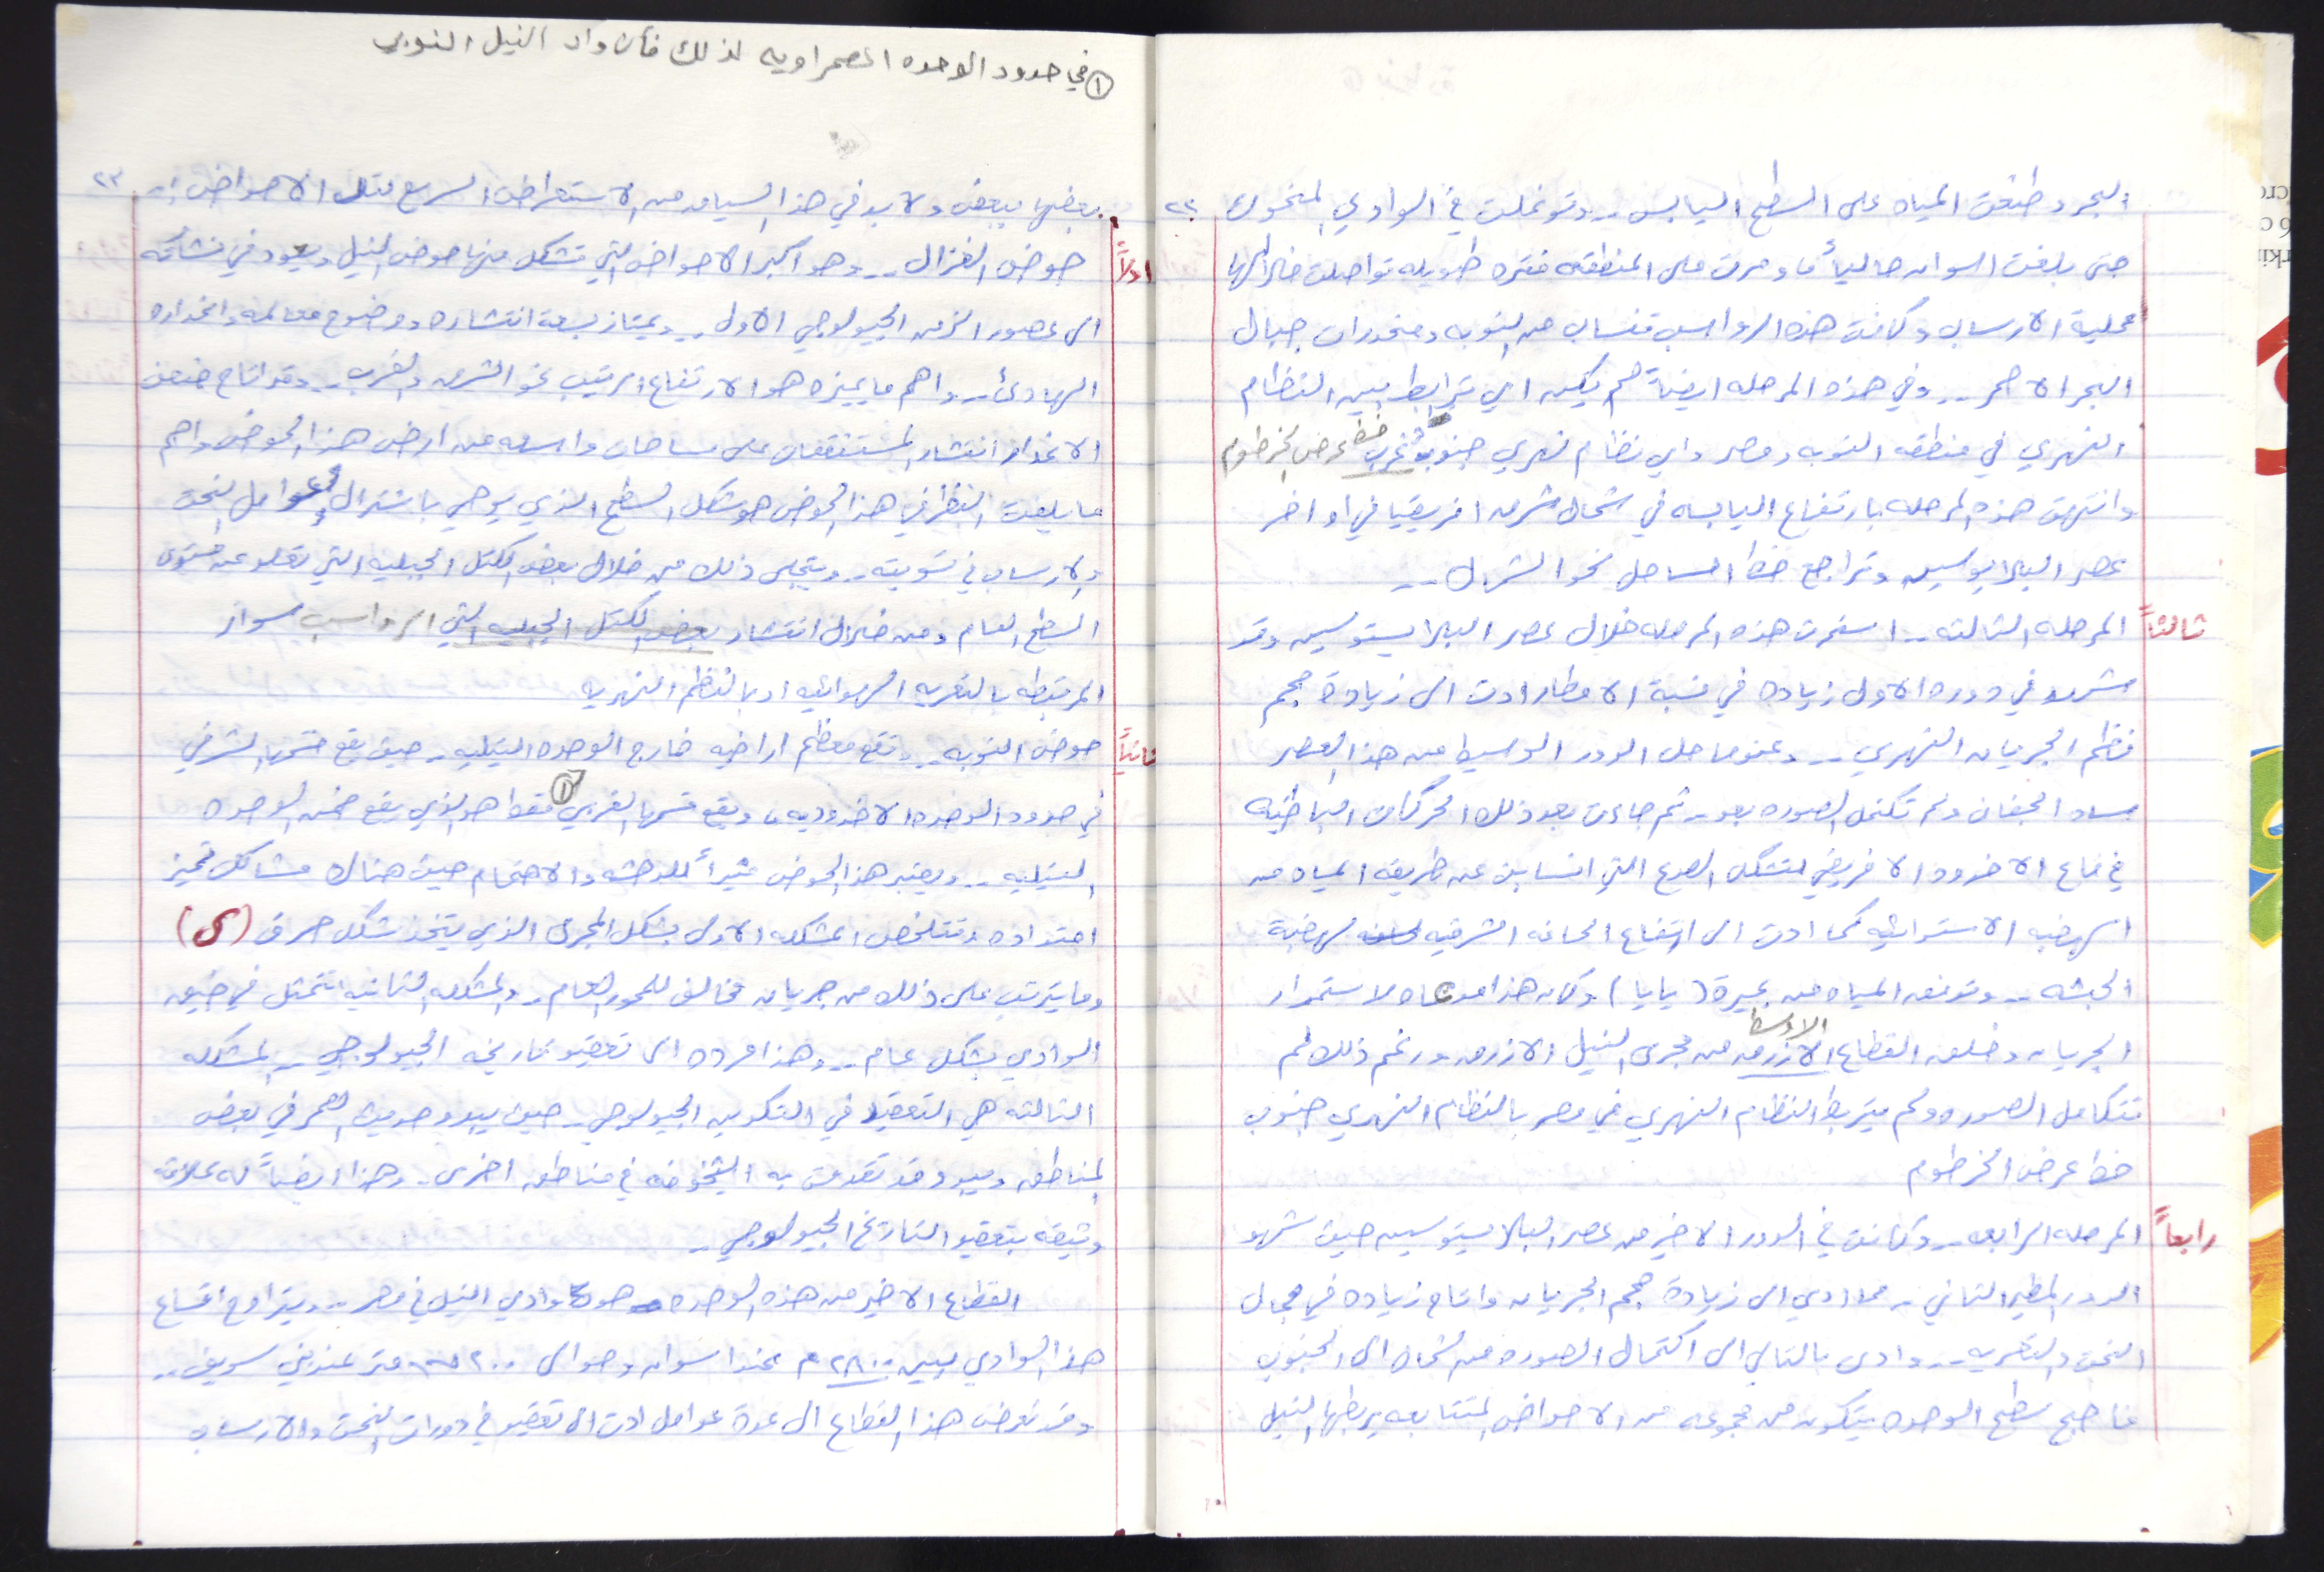 ٢٢
البحر وطغت المياه على السطح اليابس -- وتوغلت في الوادي المنخفض
حتى بلغت اسوان حالياً ومرت على المنطقه فتره طويله تواصلت خلالها
عملية الارساب وكانت هذه الرواسب تنساب من النوبه ومنحدرات جبال
البحر الاحمر -- وفي هذه المرحله ايضاً لم يكن اي ترابط بين النظام
النهري في منطقه النوبه ومصر واي نظام نهري جنوب خط عرض الخرطوم
وانتهت هذه المرحله بارتفاع اليابسه في شمال شرق افريقيا في اواخر
عصر البلايوسين وتراجع خط الساحل نحو الشمال --
ثالثاً المرحله الثالثه -- استمرت هذه المرحله خلال عصر البلايستوسين وقد
شهد في دوره الاول زياده في نسبة الامطار ادت الى زيادة حجم
نظم الجريان النهري -- وعندما حل الدور الوسيط من هذا العصر
ساد الجفاف ولم تكتمل الصوره بعد -- ثم جاءت بعد ذلك الحركات الباطنيه
في قاع الاخدود الافريقي لتشكل الصدع التي انسابت عن طريقه المياه من
الهضبه الاستوائيه كما ادت الى ارتفاع الحافه الشرقيه لهضبة
الحبشه -- وتدفق المياه من بحيرة (يايا) وكان هذا مدعاه لاستمرار
الجريان وخلق القطاع الاوسط من مجرى النيل الازرق ورغم ذلك لم
تتكامل الصوره ولم يترابط النظام النهري في مصر بالنظام النهري جنوب
خط عرض الخرطوم
رابعاً المرحله الرابعه -- وكانت في الدور الاخير من عصر البلايستوسين حيث شهد
الدور المطير الثاني - مما ادى الى زيادة حجم الجريان واتاح زياده في مجال
النحت والتعريه -- وادى بالتالي الى اكتمال الصوره من الشمال الى الجنوب
فاصبح سطح الوحده يتكون من مجموعه من الاحواض المتتابعه يربطها النيل
① في حدود الوحده الصحراويه لذلك فأن واد النيل النوبي
٢٣
بعضها ببعض ولا بد في هذا السياق من الاستعراض السريع لتلك الاحواض :-
اولاً حوض الغزال -- وهو اكبر الاحواض التي تشكل منها حوض النيل ويعود في نشأته
الى عصور الزمن الجيولوجي الاول -- ويمتاز بسعة انتشاره ووضوح معالمه وانحداره
الهادئ -- واهم ما يميزه هو الارتفاع الرتيب نحو الشرق والغرب -- وقد اتاح ضعف
الانحدار انتشار المستنقعات على مساحات واسعه من ارض هذا الحوض واهم
ما يلفت النظر في هذا الحوض هو شكل السطح الذي يوحي باشتراك عوامل النحت
والارساب في تسويته -- ويتجلى ذلك من خلال بعض الكتل الجبليه التي تعلو عن مستوى
السطح العام ومن خلال انتشار بعض الكتل الجبليه التي الرواسب سواء
المرتبطه بالتعريه الهوائيه او بالنظم النهريه
ثانياً حوض النوبه -- وتقع معظم اراضيه خارج الوحده النيليه - حيث يقع قسمها الشرقي
في حدود الوحده الاخدوديه ، ويقع قسمها الغربي ① فقط هو الذي يقع ضمن الوحده
النيليه -- ويعتبر هذا الحوض مثيراً للدهشه والاهتمام حيث هناك مشاكل تميز
امتداده وتتلخص المشكله الاولى بشكل المجرى الذي يتخذ شكل حرف (S)
وما يترتب على ذلك من جريان مخالف للمحور العام - والمشكله الثانيه تتمثل في ضيق
الوادي بشكل عام -- وهذا مرده الى تعقيد تاريخه الجيولوجي - المشكله
الثالثه هي التعقيد في التكوين الجيولوجي - حيث يبدو حديث العمر في بعض
المناطق ويبدو قد تقدمت به الشيخوخه في مناطق اخرى - وهذا ايضاً له علاقه
وثيقه بتعقيد التاريخ الجيولوجي -
القطاع الاخير من هذه الوحده هو وادي النيل في مصر -- ويتراوح اتساع
هذا الوادي بين ٢٨٠٠ م عند اسوان وحوالى ٢٠٠٠٠ متر عند بني سويف --
وقد تعرض هذا القطاع الى عدة عوامل ادت الى تعقيد في دورات النحت والارساب